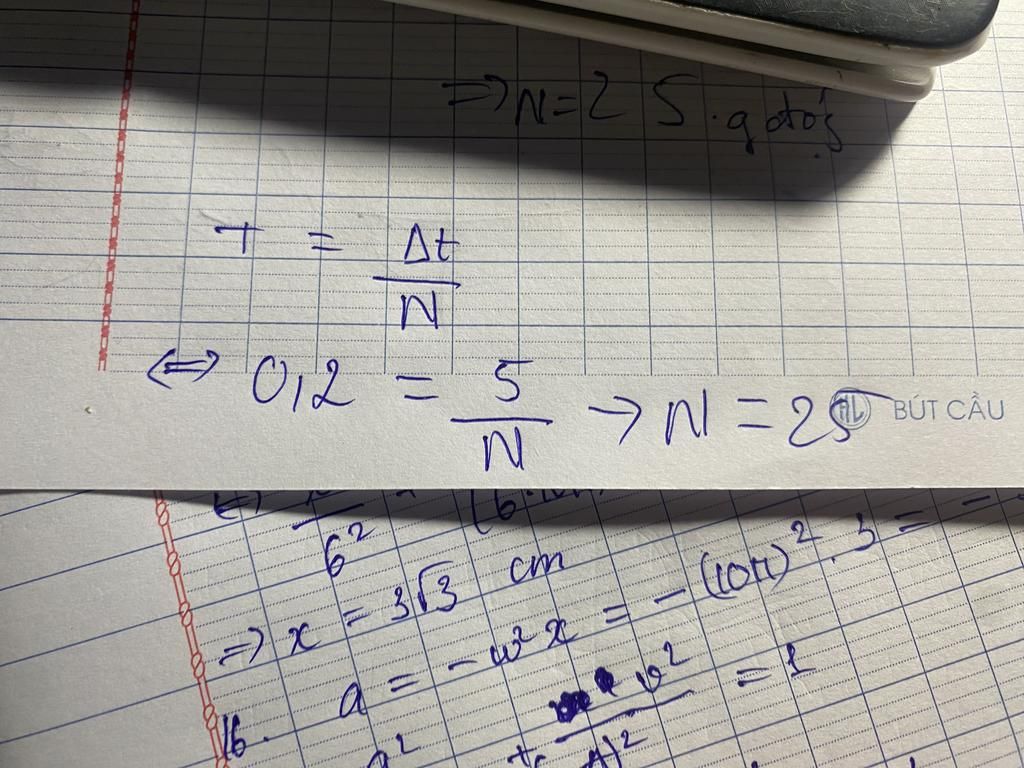 ⇒ N = 2 5
T = Δt / N
⇔ 0,2 = 5 / N → N = 25
BÚT CẦU
6²
⇒ x = 3√3 cm
a = -ω²x = -(10π)² . 3 = -
16. v² = 1